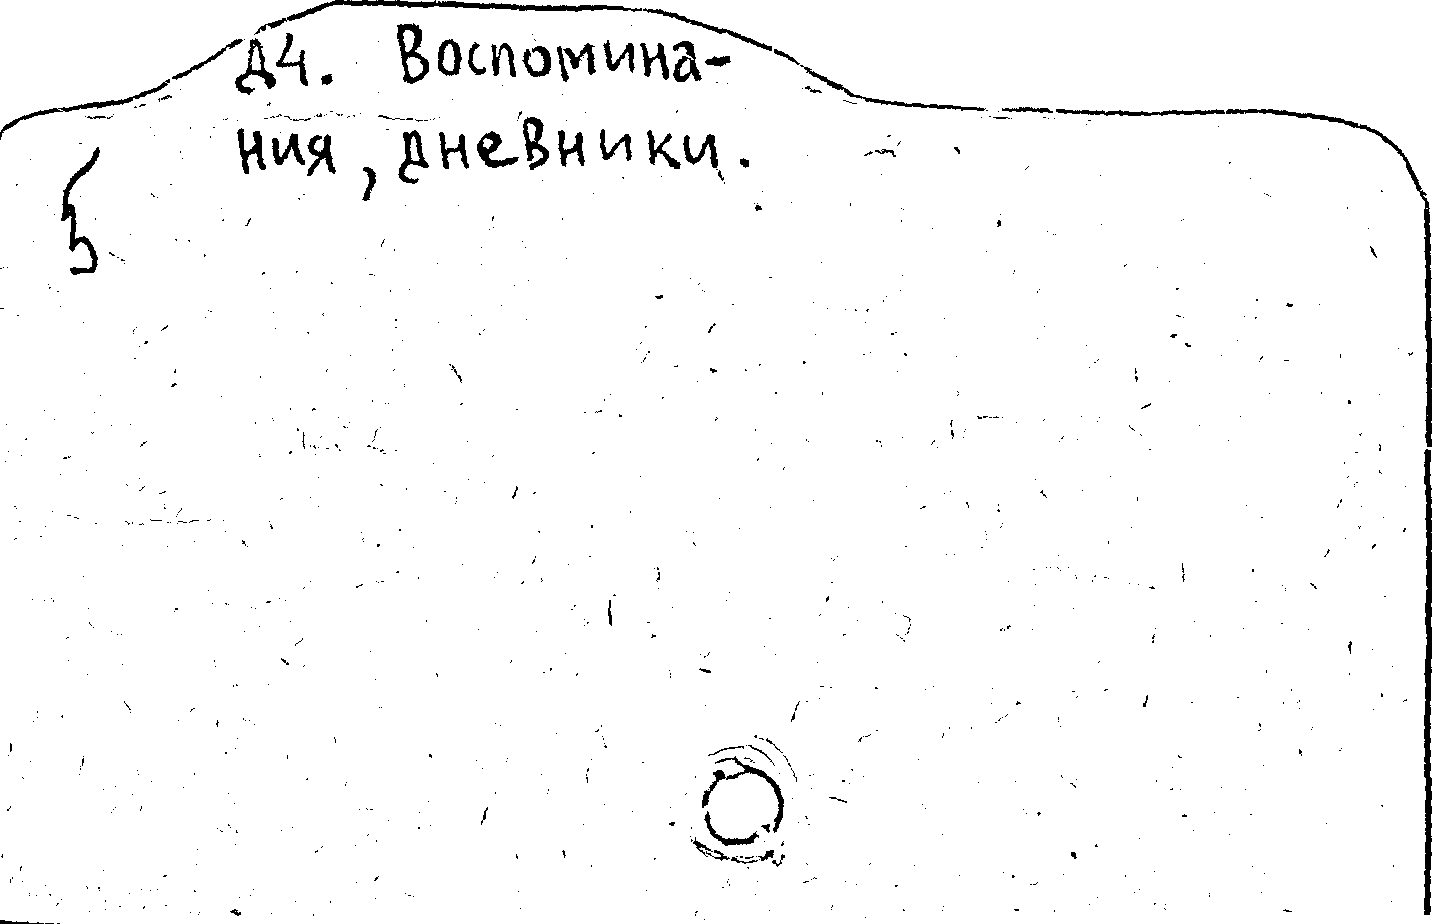 Д4. Воспомина-
ния, дневники.